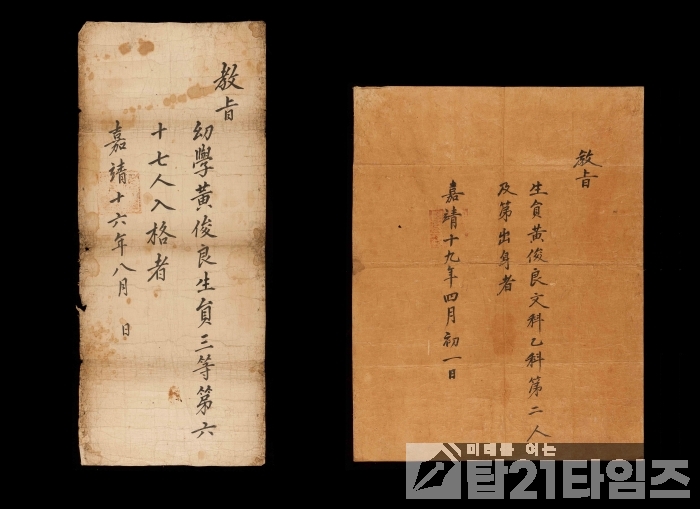 敎旨
幼學黃俊良生員三等第六
十七人入格者
嘉靖十六年八月 日
敎旨
生員黃俊良文科乙科第二人
及第出身者
嘉靖十九年四月初一日
미래를 여는
탑21타임즈